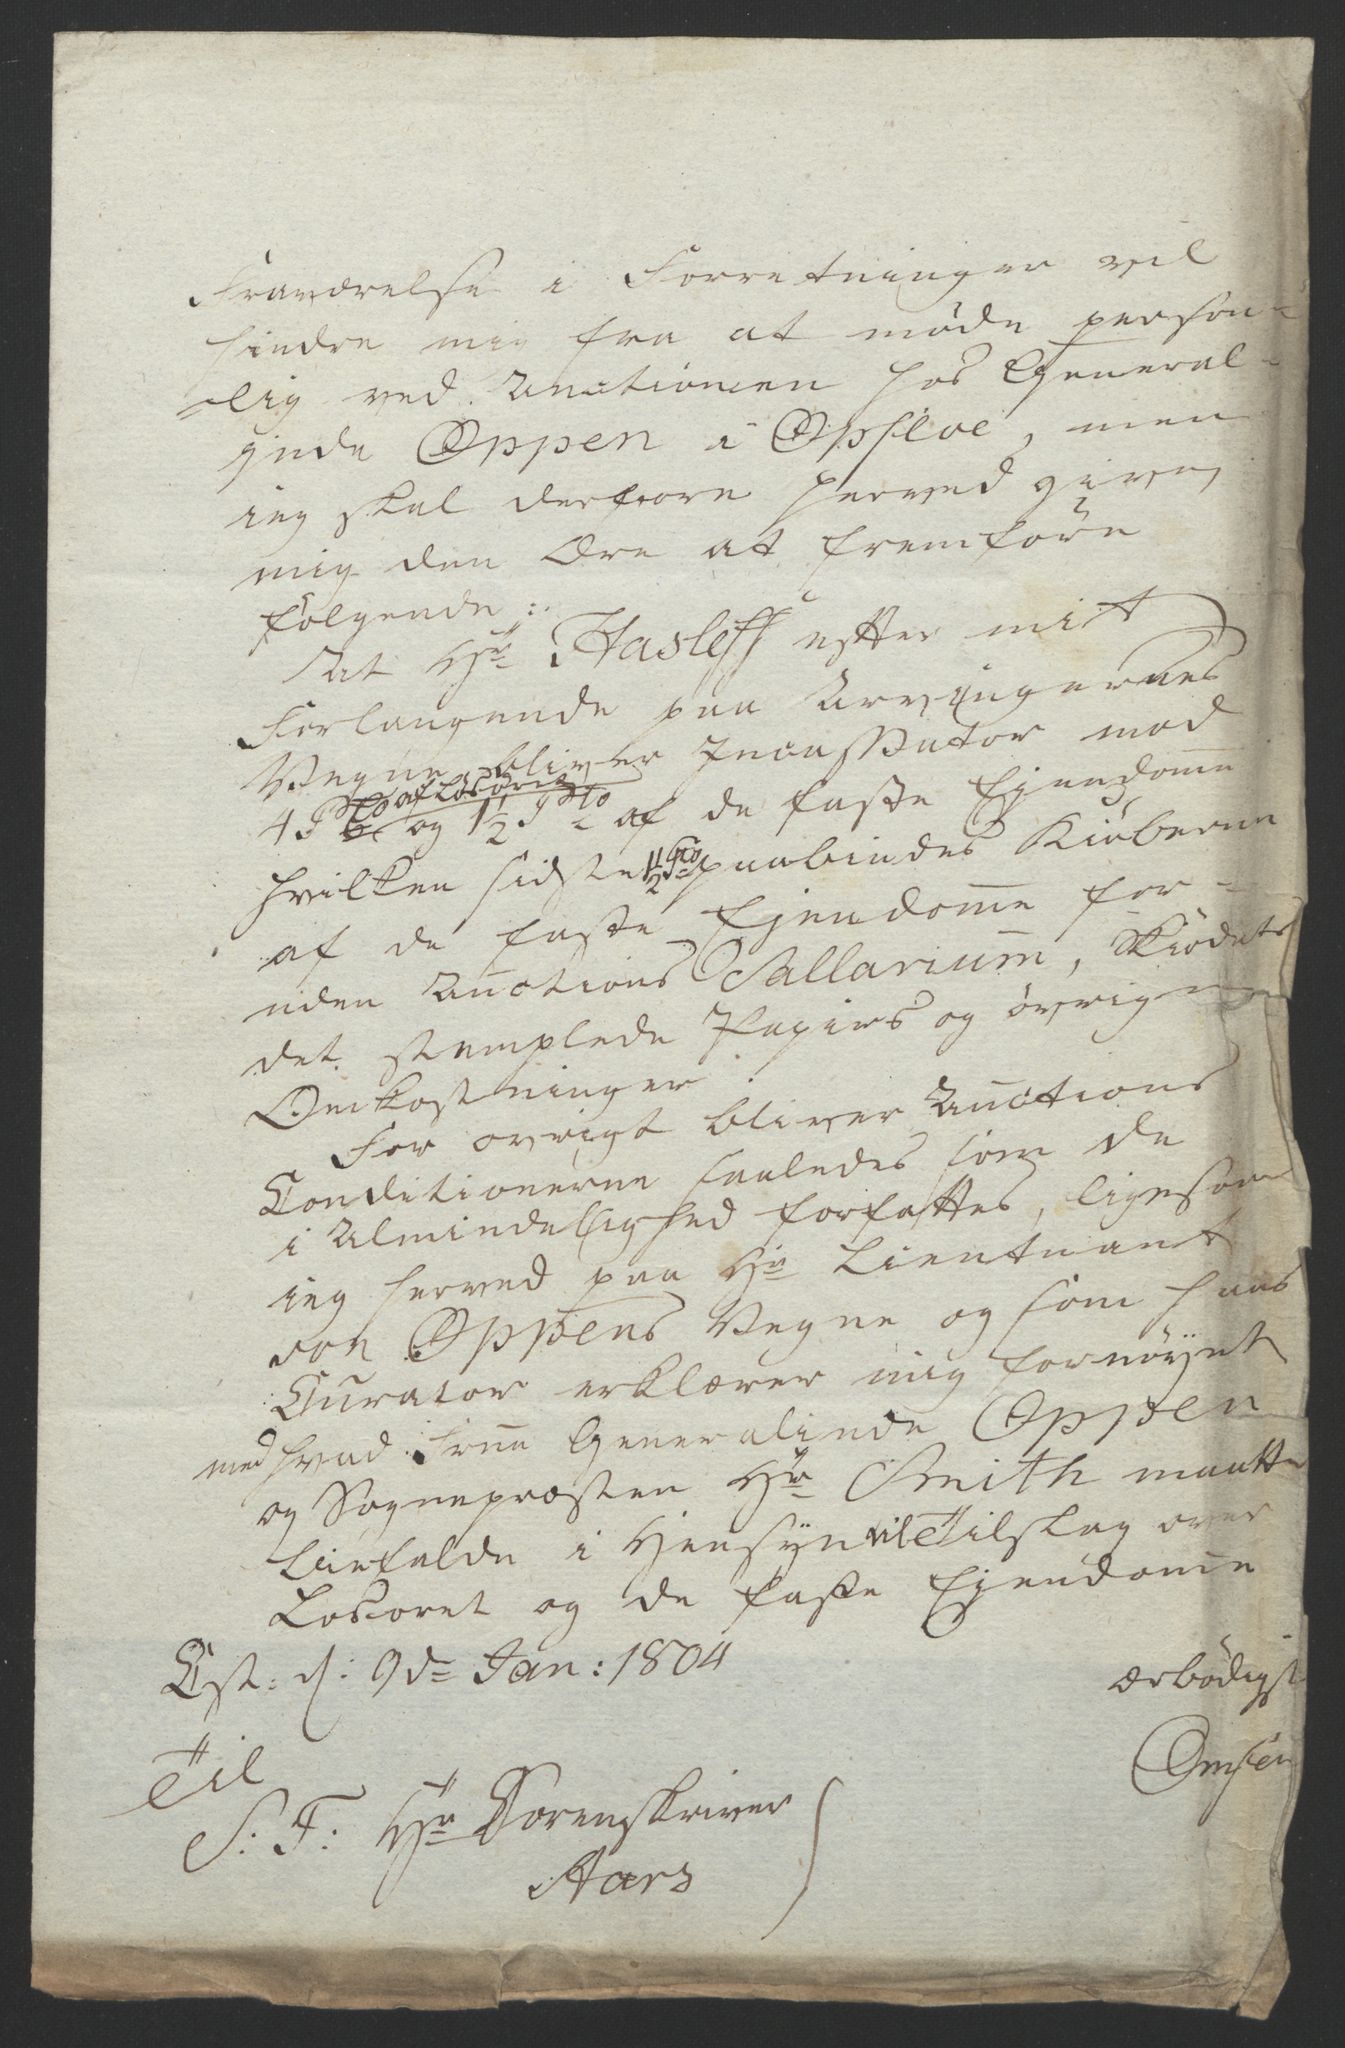 Fraværelse i Forretninger vil
hindre mig fra at møde person-
-lig ved Auctionen hos General-
inde Oppen i Opsloe, men
ieg skal derfore herved give
mig den Ære at fremføre
følgende:
At Hr Hasleff efter mit
Forlangende paa Arvingernes
Vegne bliver Incassator mod
4 P Cto af Løsøret og 1½ P Cto af de faste Ejendomme
hvilken sidste 1½ P Cto paabindes Kiøberne
af de faste Ejendomme for-
uden Auctions Sallarium, Skiødets
det stemplede Papiirs og øvrige
Omkostninger.
For øvrigt bliver Auctions
Conditionerne saaledes som de
i Almindelighed forfattes, ligesom
ieg herved paa Hr Lieutnant
von Oppens Vegne og som hans
Curator erklærer mig fornøyet
med hvad Frue Generalinde Oppen
og Sognepræsten Hr Smith maatte
i Hensyn til Tilslag over
Løsøret og de faste Ejendomme
Chst: d: 9de Jan: 1804
ærbødigst
Omsen
Til
S. T. Hr Sorenskriver
Aars